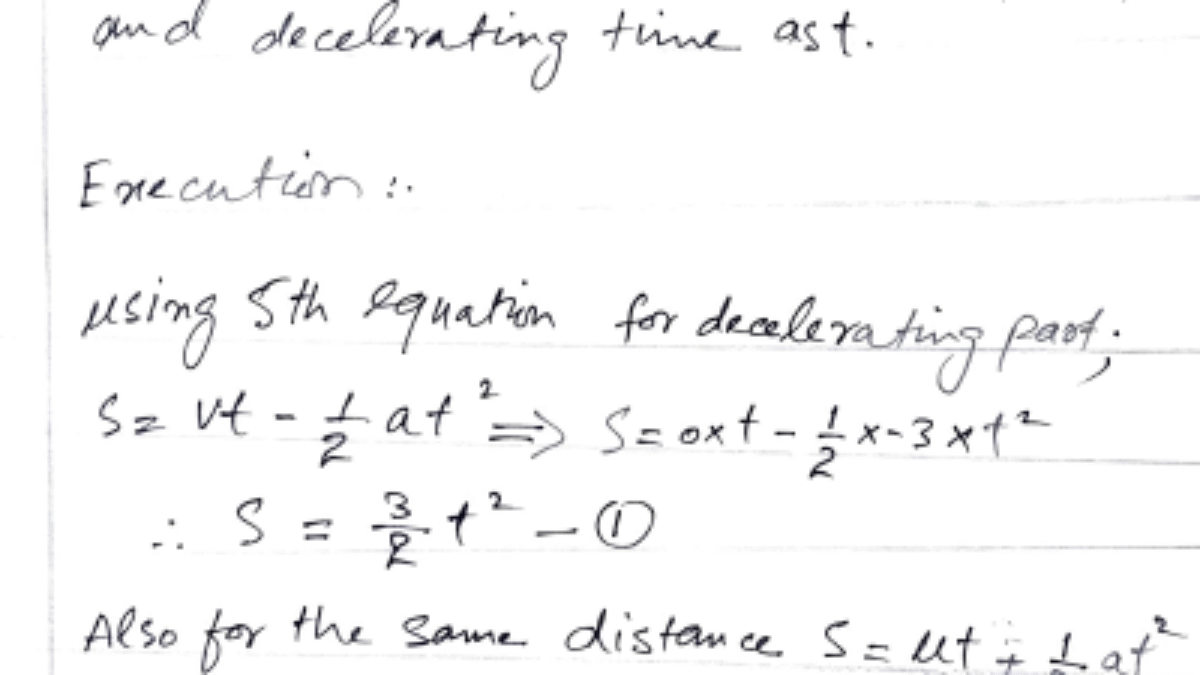 and decelerating time as t.
Execution :.
using 5th equation for decelerating part;
S = vt - 1/2 at² ⇒ S = 0×t - 1/2 ×-3 × t²
∴ S = 3/2 t² - ①
Also for the same distance S = ut + 1/2 at²